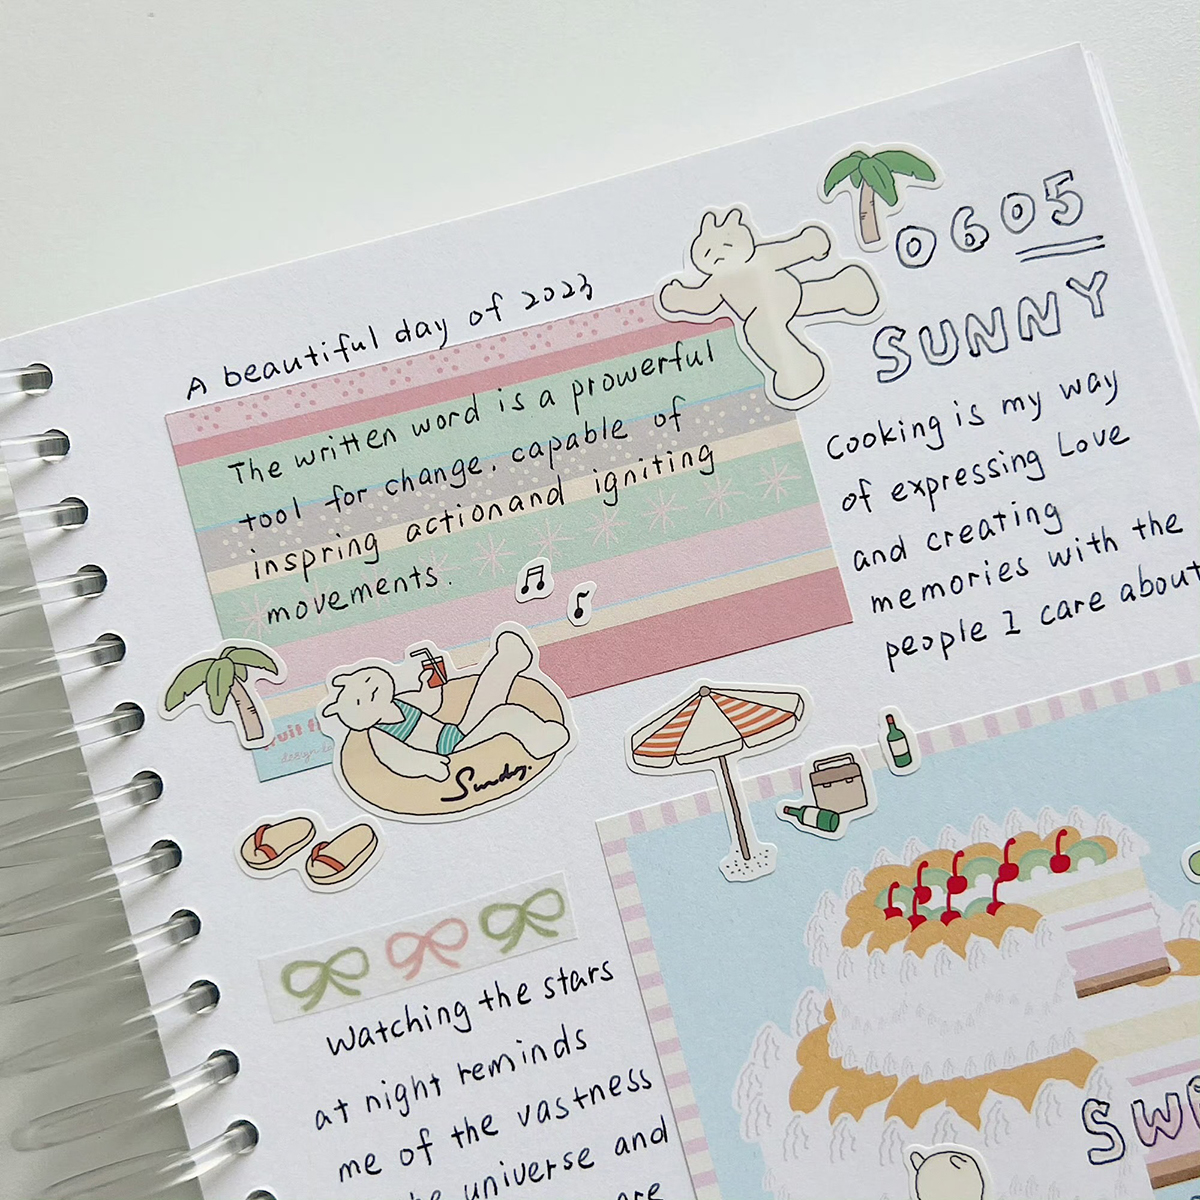 A beautiful day of 2023
The written word is a prowerful
tool for change. capable of
inspring actionand igniting
movements.
Sunday.
0605
SUNNY
Cooking is my way
of expressing Love
and creating
memories with the
people I care about
Watching the stars
at night reminds
me of the vastness
universe and